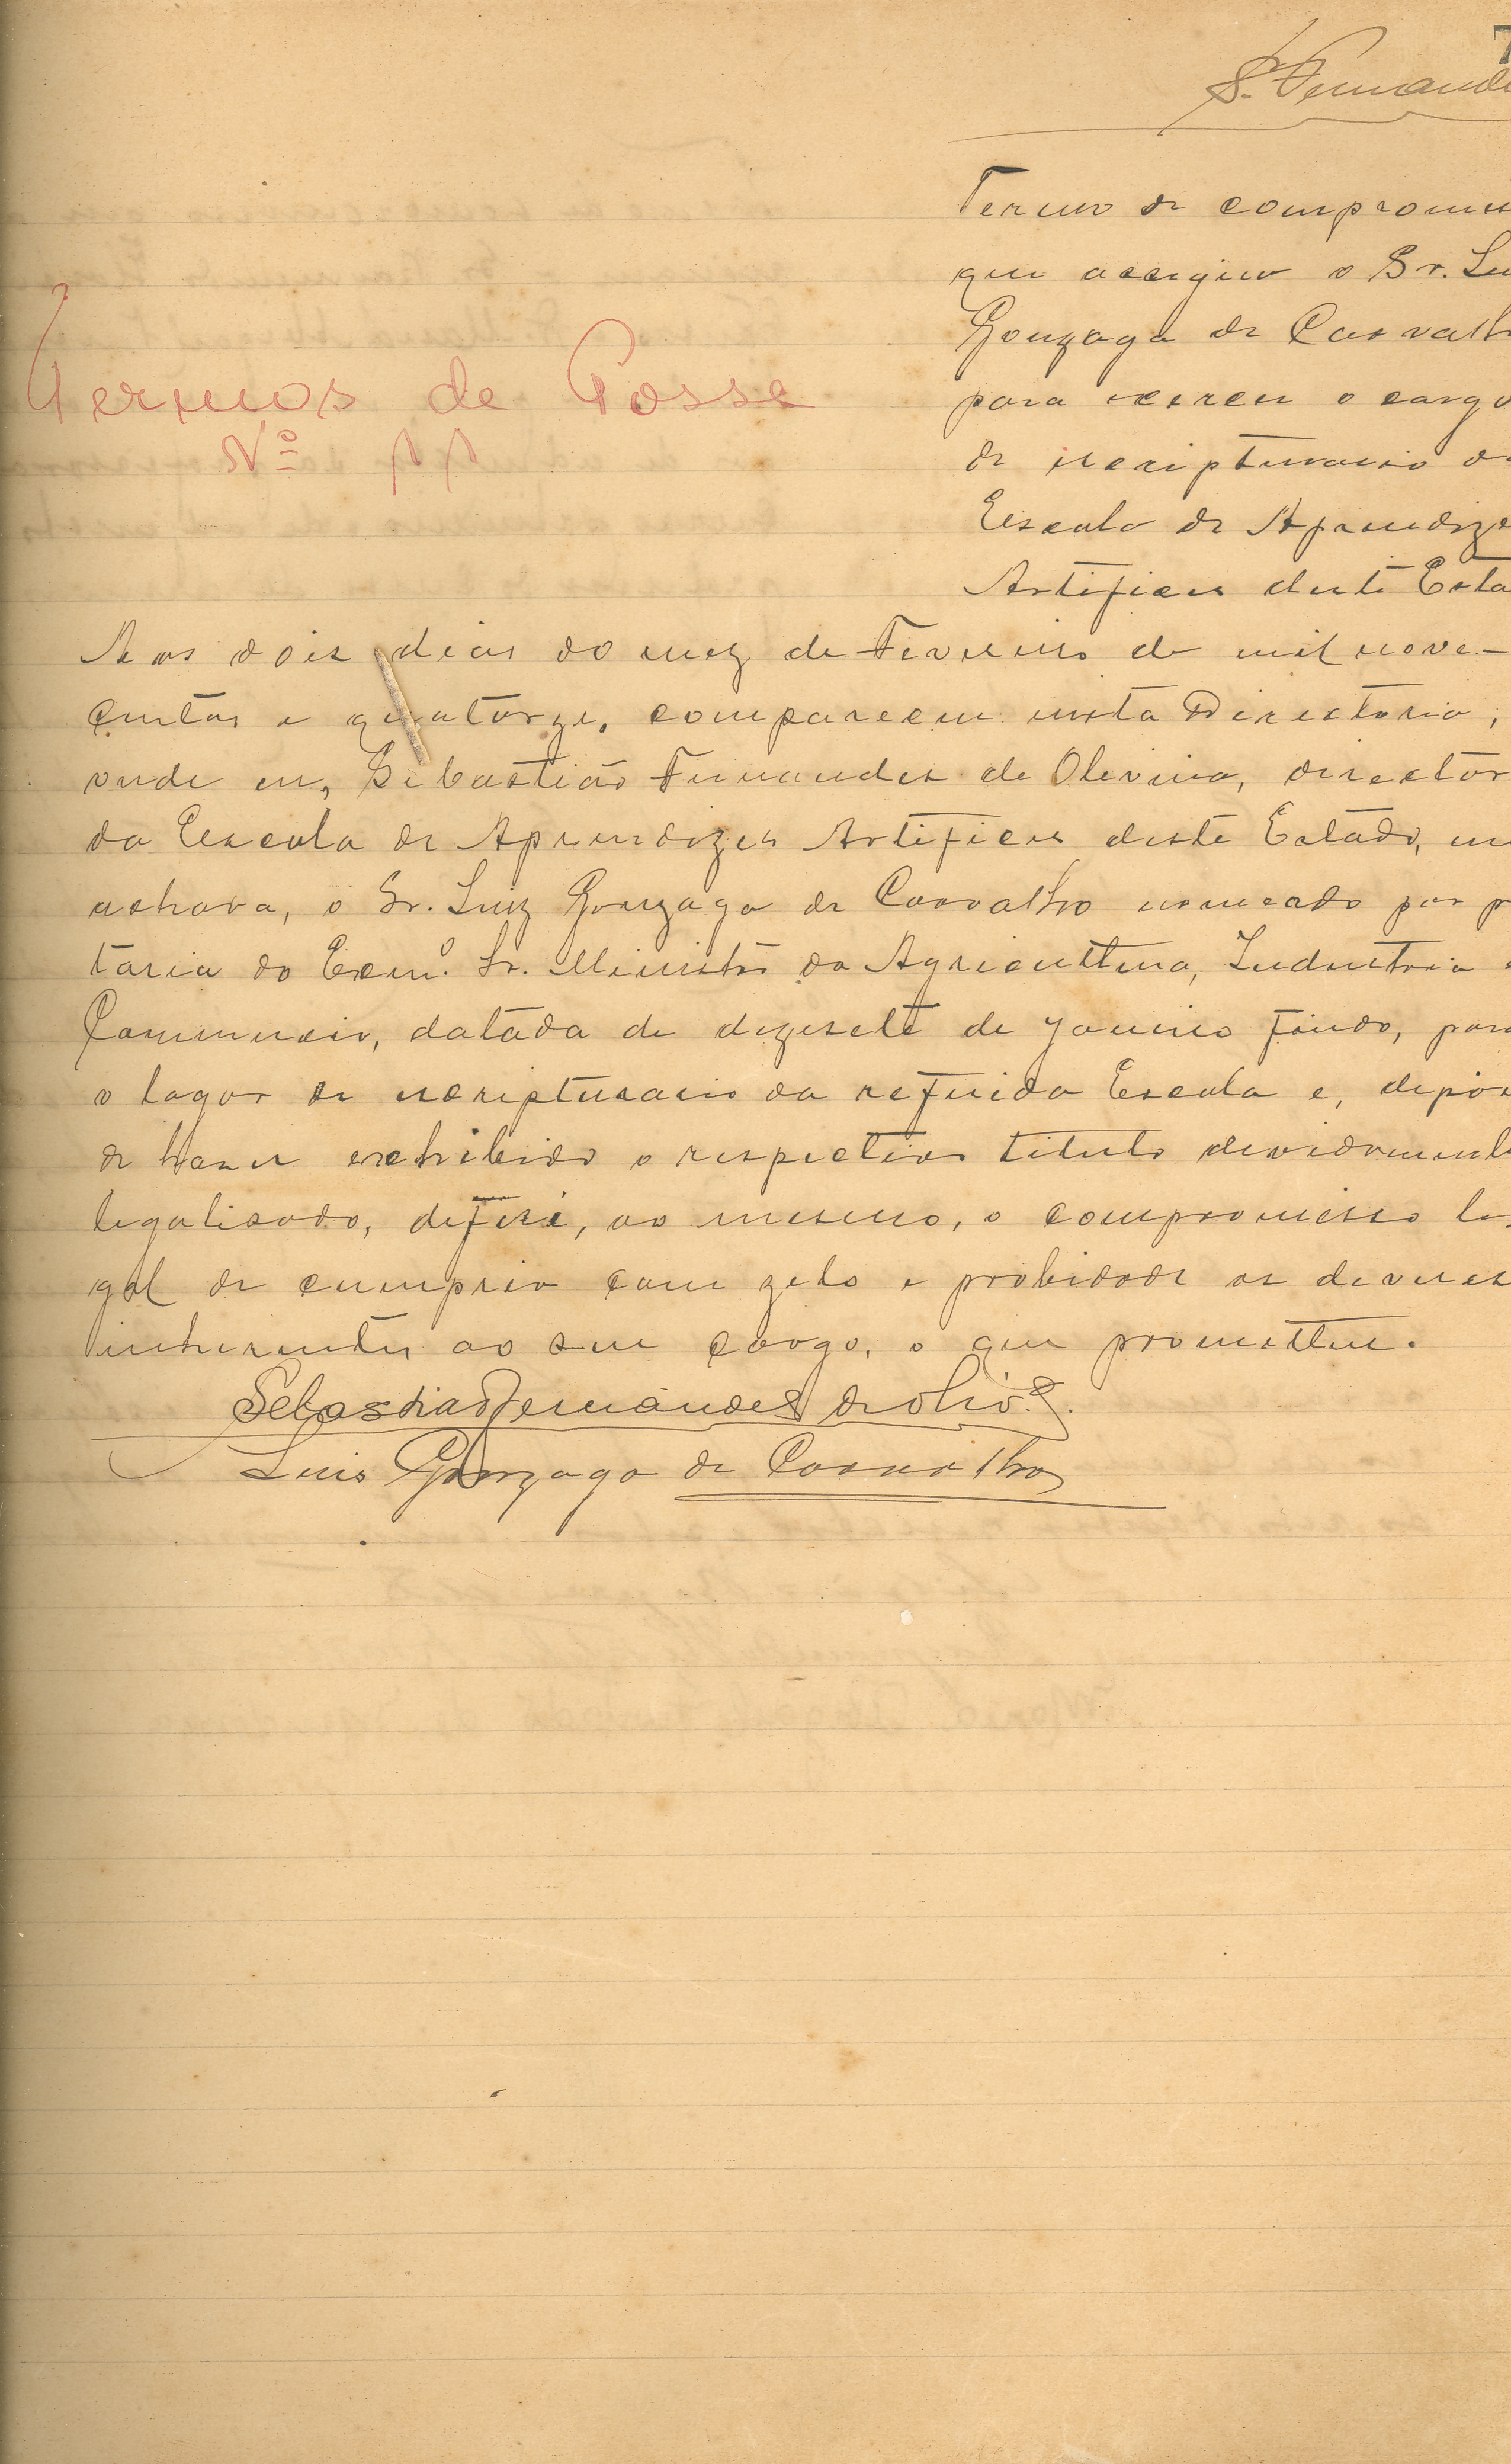 7
S. Fernande
Termo de compromis
que assigna o Sr. Lui
Gonzaga de Carvalh
para exercer o cargo
de escripturario d
Escola de Aprendize
Artifices deste Esta
Termos de Posse
Nº 11
Aos dois dias do mez de Fevereiro de mil nove-
centos e quatorze, compareceu nesta Directoria,
onde eu, Sebastião Fernandes de Oliveira, director
da Escola de Aprendizes Artifices deste Estado, me
achava, o Sr. Luiz Gonzaga de Carvalho nomeado por p
taria do Exmº. Sr. Ministro da Agricultura, Industria e
Commercio, datada de dezesete de Janeiro findo, para
o logar de escripturario da referida Escola e, depois
de haver exhibido o respectivo titulo devidamente
legalisado, deferi, ao mesmo, o compromisso le
gal de cumprir com zelo e probidade os deveres
inherentes ao seu cargo, o que prometteu.
Sebastião Fernandes de Olivª.
Luis Gonzaga de Carvalho